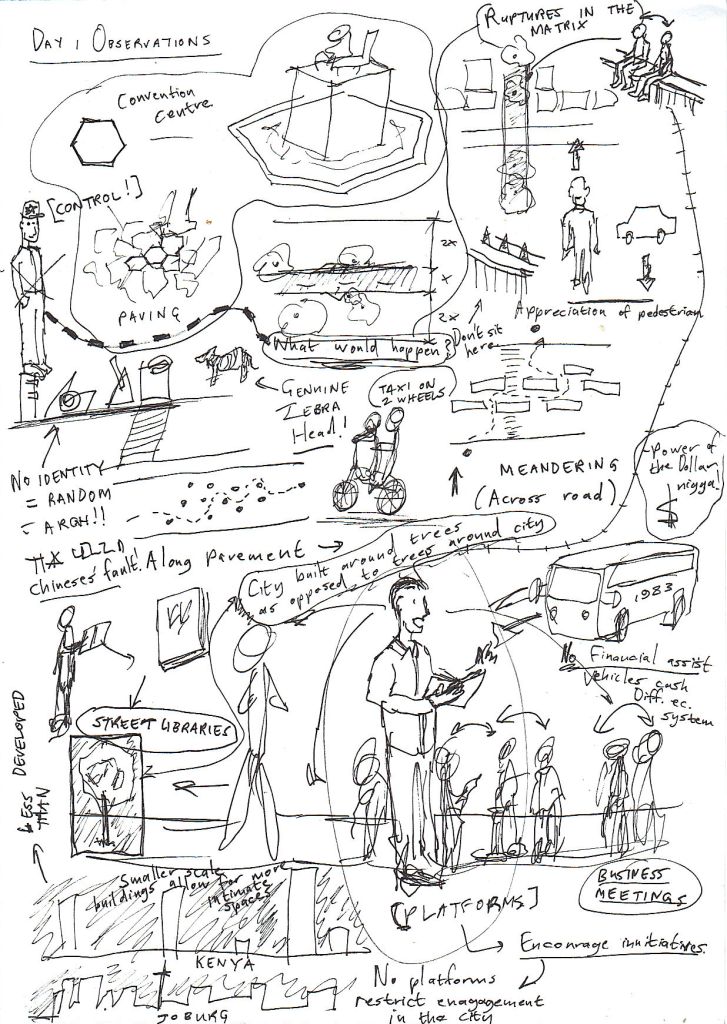 DAY 1 OBSERVATIONS
RUPTURES IN THE
MATRIX
Convention
Centre
[CONTROL!]
PAVING
2x
x
2x
What would happen?
Don't sit
here
Appreciation of pedestrian
GENUINE
ZEBRA
Head!
TAXI ON
2 WHEELS
NO IDENTITY
= RANDOM
= ARGH!!
Chineses' fault!
Along Pavement
MEANDERING
(Across road)
Power of
the Dollar
nigga!
$
City built around trees
as opposed to trees around city
1983
No Financial assist
Vehicles cash
Diff. ec.
system
STREET LIBRARIES
LESS DEVELOPED
THAN
Smaller scale
buildings allow for more
intimate
spaces
KENYA
JOBURG
[PLATFORMS]
BUSINESS
MEETINGS
Encourage innitiatives.
No platforms
restrict enagagement
in the city